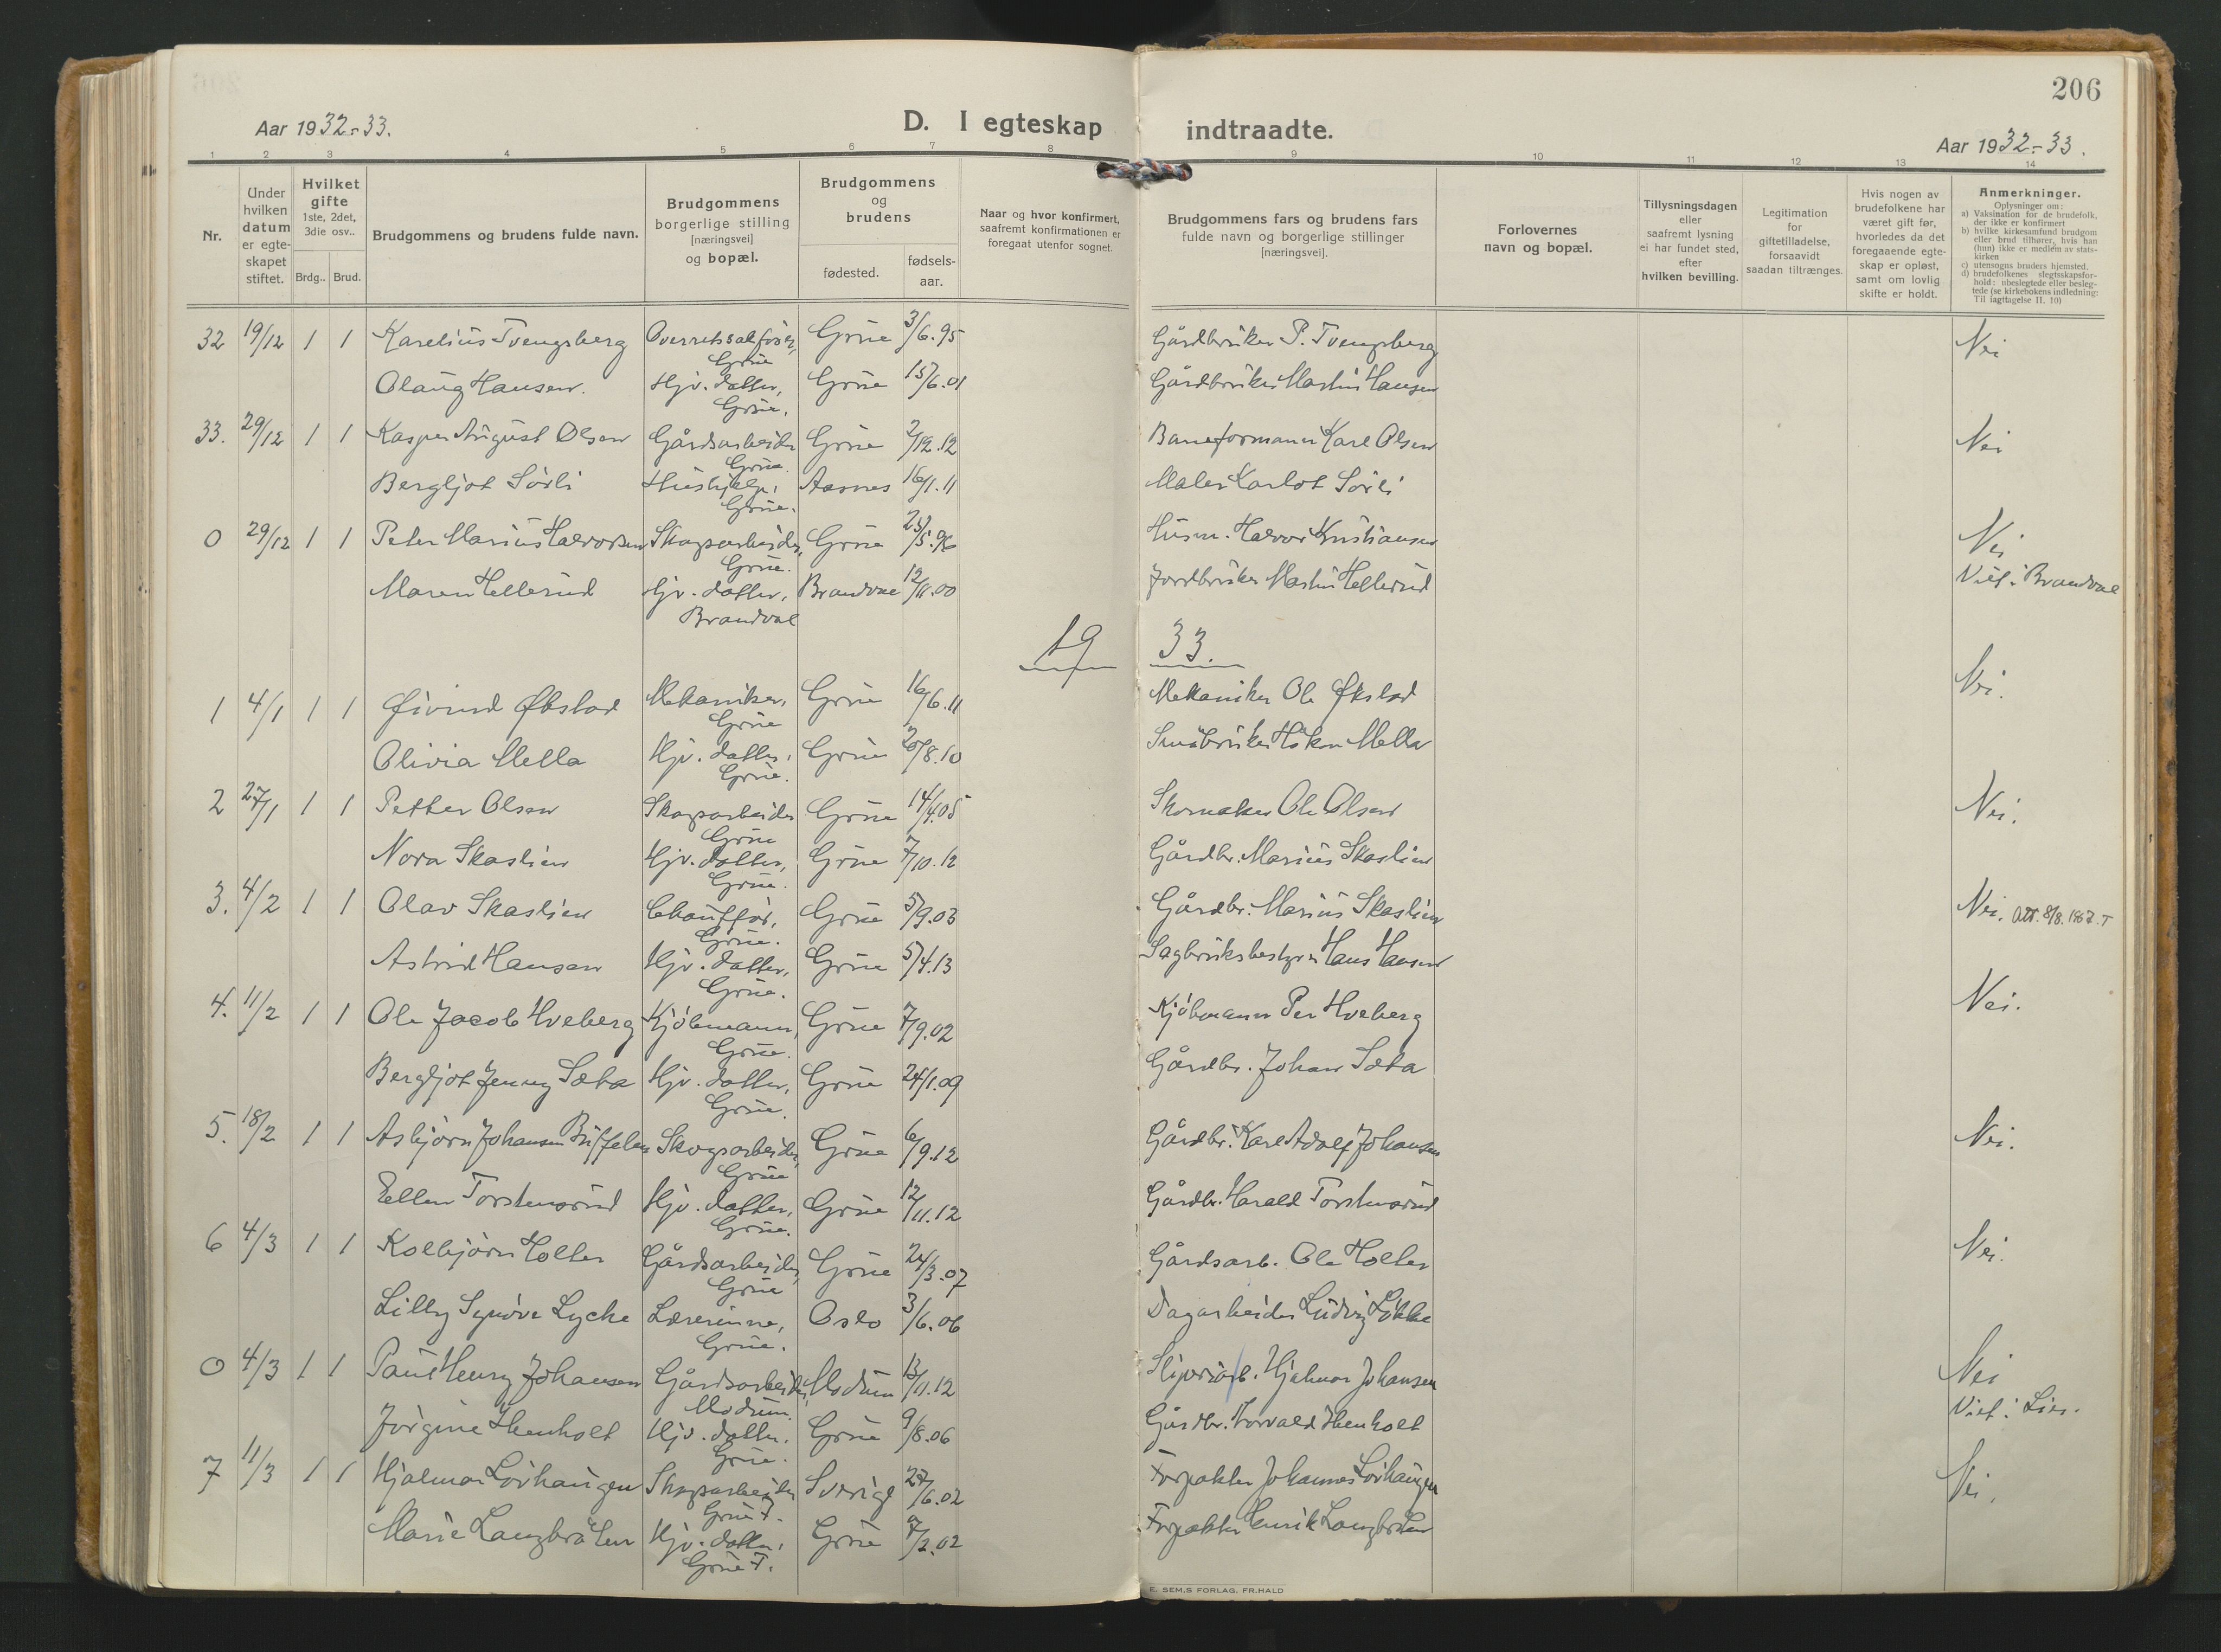 206
Aar 1932-33.
D. I egteskap indtraadte.
Aar 1932-33.
1 2 3 4 5 6 7 8 9 10 11 12 13 14
Nr.
Under hvilken datum er egte-skapet stiftet.
Hvilket gifte 1ste, 2det, 3die osv..
Brdg.. Brud.
Brudgommens og brudens fulde navn.
Brudgommens borgerlige stilling [næringsvei] og bopæl.
Brudgommens og brudens
fødested.
fødsels-aar.
Naar og hvor konfirmert, saafremt konfirmationen er foregaat utenfor sognet.
Brudgommens fars og brudens fars fulde navn og borgerlige stillinger [næringsvei].
Forlovernes navn og bopæl.
Tillysningsdagen eller saafremt lysning ei har fundet sted, efter hvilken bevilling.
Legitimation for giftetilladelse, forsaavidt saadan tiltrænges.
Hvis nogen av brudefolkene har været gift før, hvorledes da det foregaaende egte-skap er opløst, samt om lovlig skifte er holdt.
Anmerkninger.
Oplysninger om:
a) Vaksination for de brudefolk, der ikke er konfirmert
b) hvilke kirkesamfund brudgom eller brud tilhører, hvis han (hun) ikke er medlem av stats-kirken
c) utensogns bruders hjemsted.
d) brudefolkenes slegtsskapsfor-hold: ubeslegtede eller besleg-tede (se kirkebokens indledning: Til iagttagelse II. 10)
32 19/12 1 1 Karelius Tvengsberg Overretssakfører, Grue Grue 3/6.95 Gårdbruker P. Tvengsberg Nei
Olaug Hansen. Hjv. datter, Grue. Grue 15/6.01 Gårdbruker Martin Hansen
33. 29/12 1 1 Kasper August Olsen Gårdsarbeider Grue. Grue 2/12.12 Baneformann Karl Olsen Nei
Bergljot Sörli Hushjelp, Grue. Aasnes 16/1.11 Maler Karlot Sörli
0 29/12 1 1 Peter Marius Halvorsen Skogsarbeider, Grue. Grue 23/5.96 Husm. Halvor Kristiansen Nei
Maren Hellerud Hjv. datter, Brandval Brandval 12/11.00 Jordbruker Martin Hellerud Viet i Brandval
19 33.
1 4/1 1 1 Øivind Økstad Mekaniker, Grue Grue 16/6.11 Mekaniker Ole Økstad Nei.
Olivia Mella Hjv. datter, Grue. Grue 20/8.10 Småbruker Håkon Mella
2 27/1 1 1 Petter Olsen Skogsarbeider Grue Grue 14/4.05 Skomaker Ole Olsen Nei.
Nora Skaslien Hjv. datter, Grue. Grue 7/10.12 Gårdbr. Marius Skaslien
3. 4/2 1 1 Olav Skaslien Chauffør, Grue. Grue 5/9.03 Gårdbr. Marius Skaslien Nei.
Astrid Hansen Hjv. datter, Grue. Grue 5/4.13 Sagbruksbestyrer Hans Hansen
4. 11/2 1 1 Ole Jacob Hveberg Kjöbmann, Grue. Grue 7/9.02 Kjöbmann Per Hveberg Nei.
Bergljot Jenny Sæta Hjv. datter, Grue. Grue 24/1.09 Gårdbr. Johan Sæta
5. 18/2 1 1 Asbjörn Johansen Buffelen Skogsarbeider, Grue Grue 6/9.12 Gårdbr. Karl Adolf Johansen Nei.
Ellen Torstensrud Hjv. datter, Grue. Grue 12/11.12 Gårdbr. Harald Torstensrud
6 4/3 1 1 Kolbjörn Holter Gårdsarbeider, Grue Grue 24/3.07 Gårdsarb. Ole Holter Nei.
Lilly Synöve Lycke Lærerinne, Grue. Oslo 3/6.06 Dagarbeider Ludvig Lökke
0 4/3 1 1 Paul Henry Johansen Gårdsarbeider, Modum. Modum 13/11.12 Sliperiarb. Hjalmar Johansen Nei
Jörgine Henholt Hjv. datter. Grue. Grue 9/8.06 Gårdbr. Torvald Henholt Viet i Lier.
7 11/3 1 1 Hjalmar Lövhaugen Skogsarbeider Grue F. Sverige 27/6.02 Forpakter Johannes Lövhaugen Nei.
Marie Langbråten Hjv. datter, Grue F. Grue 7/2.02 Forpakter Henrik Langbråten
E. SEM,S FORLAG, FR.HALD